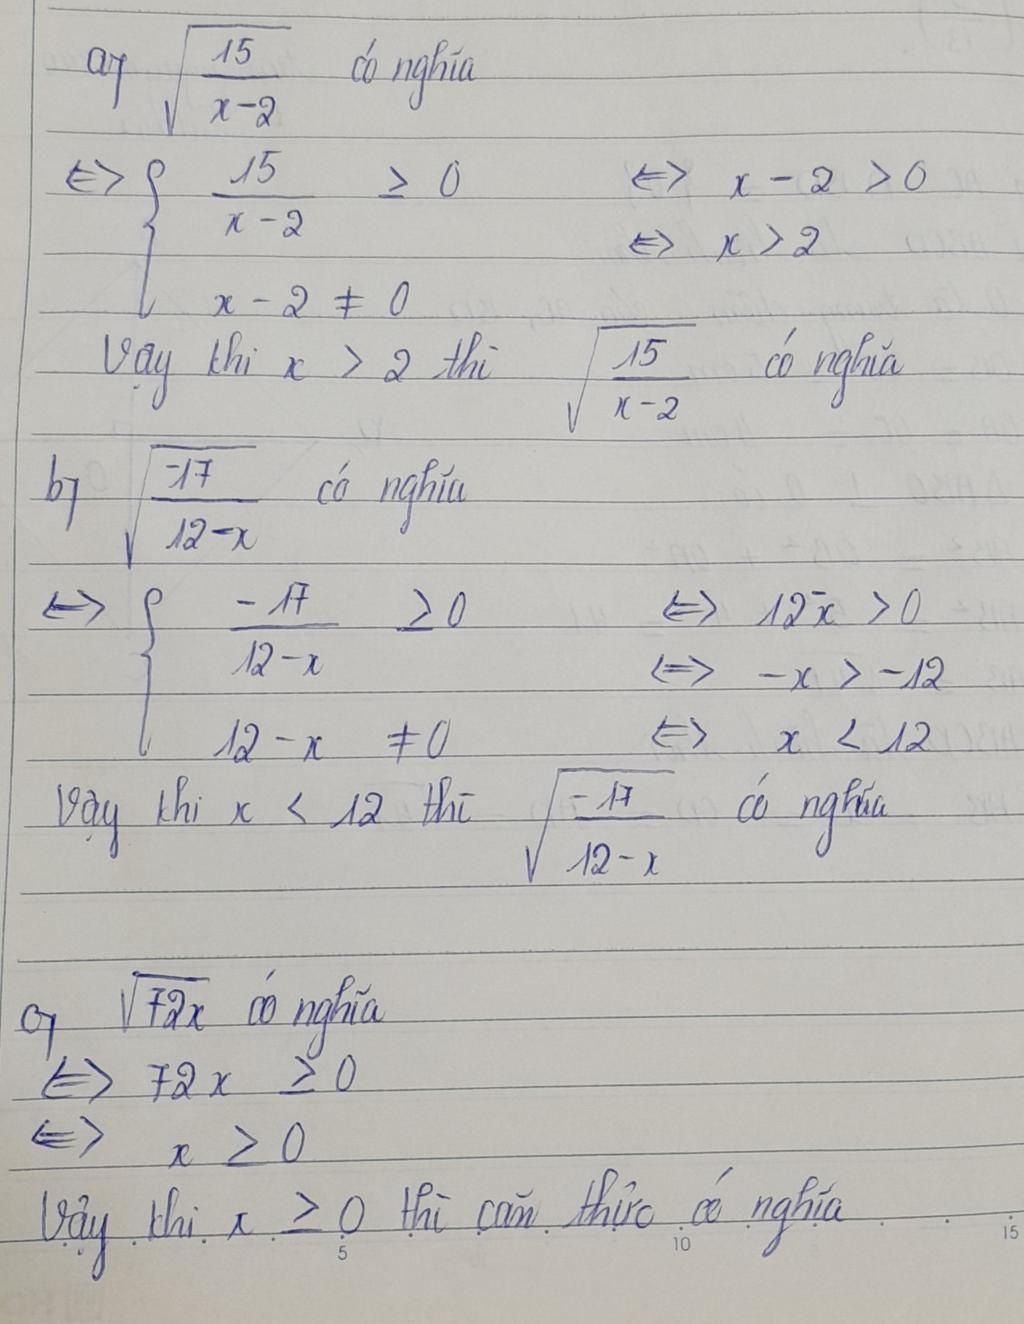 a) √(15/(x-2)) có nghĩa
<=> { 15/(x-2) ≥ 0 <=> x - 2 > 0
x - 2 ≠ 0 <=> x > 2
Vậy khi x > 2 thì √(15/(x-2)) có nghĩa
b) √(-17/(12-x)) có nghĩa
<=> { -17/(12-x) ≥ 0 <=> 12-x > 0
<=> -x > -12
12-x ≠ 0 <=> x < 12
Vậy khi x < 12 thì √(-17/(12-x)) có nghĩa
c) √72x có nghĩa
<=> 72x ≥ 0
<=> x ≥ 0
Vậy khi x ≥ 0 thì căn thức có nghĩa
5 10 15